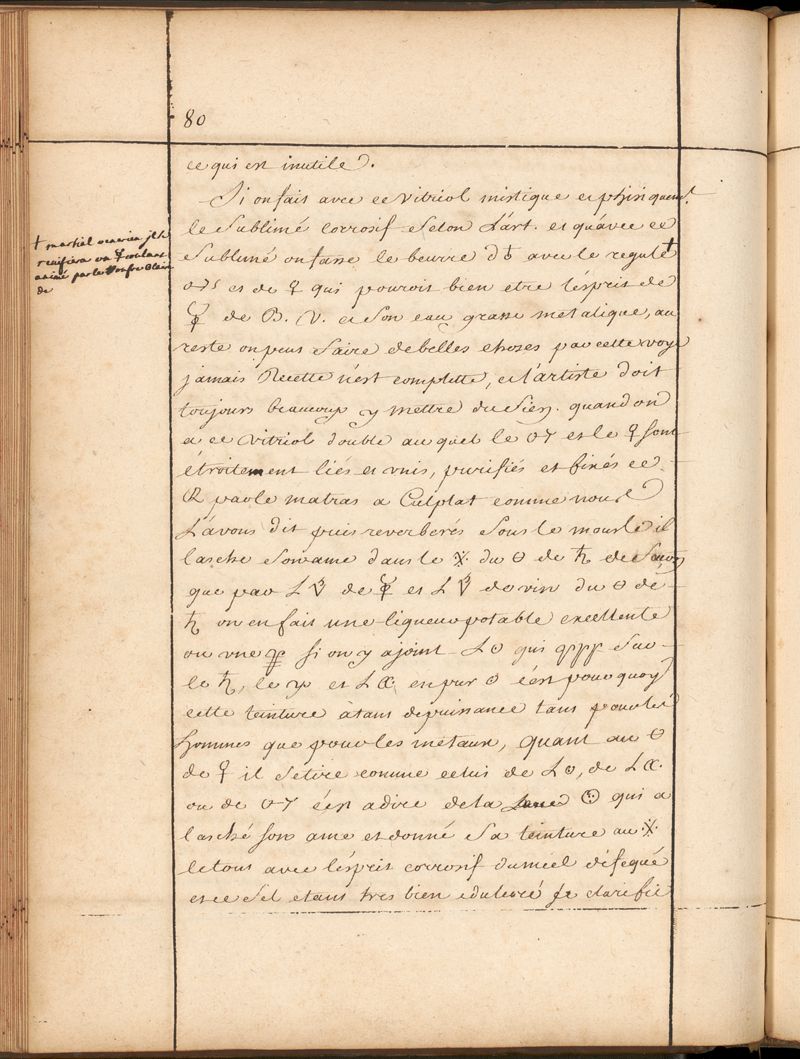 80
ce qui est inutile.
Si on fait avec ce vitriol mistique et
le sublimé corrosif selon L'art. et qu'avec ce
sublimé on fasse le beurre d'♁ avec le regule †
♂ et de ♀ qui pouroit bien etre l'ésprit de
☿ de B. V. et son eau grasse metalique, au
reste on peut faire de belles choses par cette voye
jamais Recette n'est complette, et l'artiste doit
toujours beaucoup y mettre du sien. quand on
a ce vitriol double au quel le ♂ et le ♀ sont
étroitement liés et unis, purifiés et fixés ce
par le matras a Culplat comme nous
L'avons dit puis reverberés sous le moufle il
lasche son ame dans le du θ de ♄
que par L de ☿ et L de vin du θ de
♄ on en fait une liqueur potable excellente
ou une si on y ajoint L ☉ qui pppp sur
le ♄, le ♃ et L en pur ☉ c'ést pour quoy
cette teinture à tant de puissance tant pour les
hommes que pour les metaux, quant au θ
de ♀ il se tire comme celui de L ☉, de L
ou de ♂ c'ést a dire de la ☉ qui a
lasché son ame et donné sa teinture au
le tout avec l'ésprit corrosif du miel défequé
et ce sel etant tres bien edulcoré se clarifie
† martial venerien
vivifiera un ☿ coulant
animé par le soufre
de